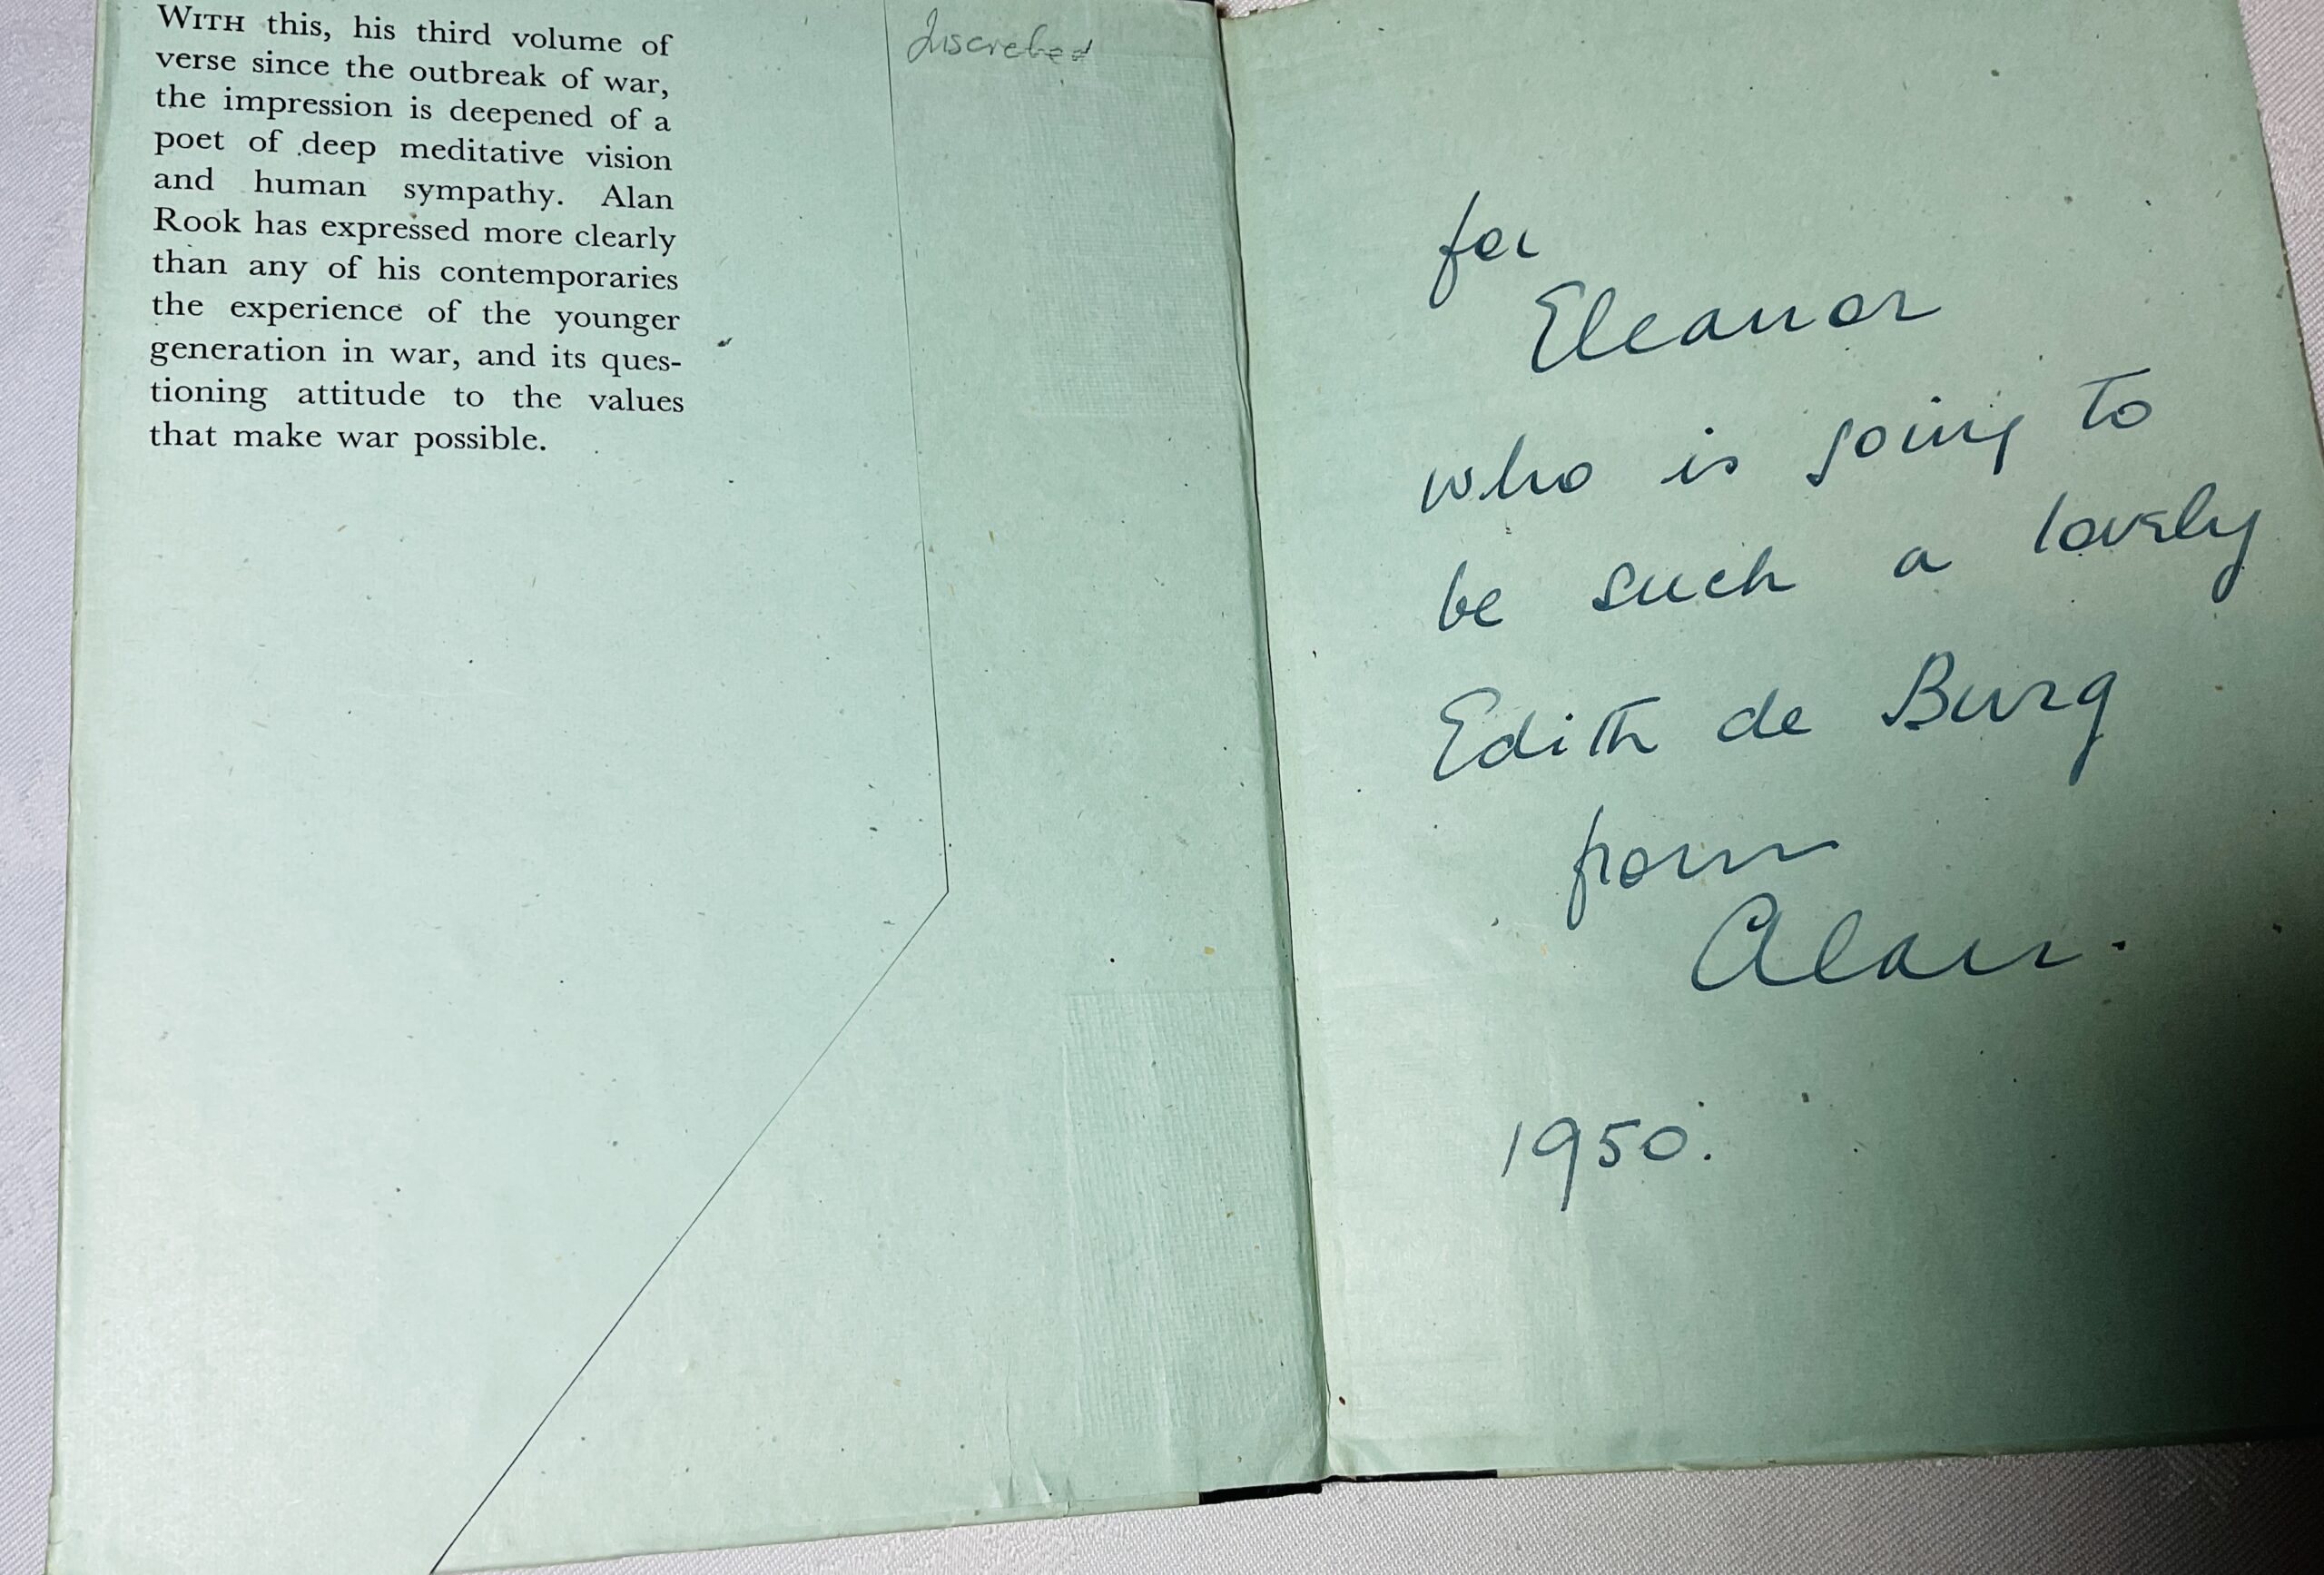 WITH this, his third volume of
verse since the outbreak of war,
the impression is deepened of a
poet of deep meditative vision
and human sympathy. Alan
Rook has expressed more clearly
than any of his contemporaries
the experience of the younger
generation in war, and its ques-
tioning attitude to the values
that make war possible.
Inscrebed
for
Eleanor
who is going to
be such a lovely
Edith de Burg
from
Alan.
1950.